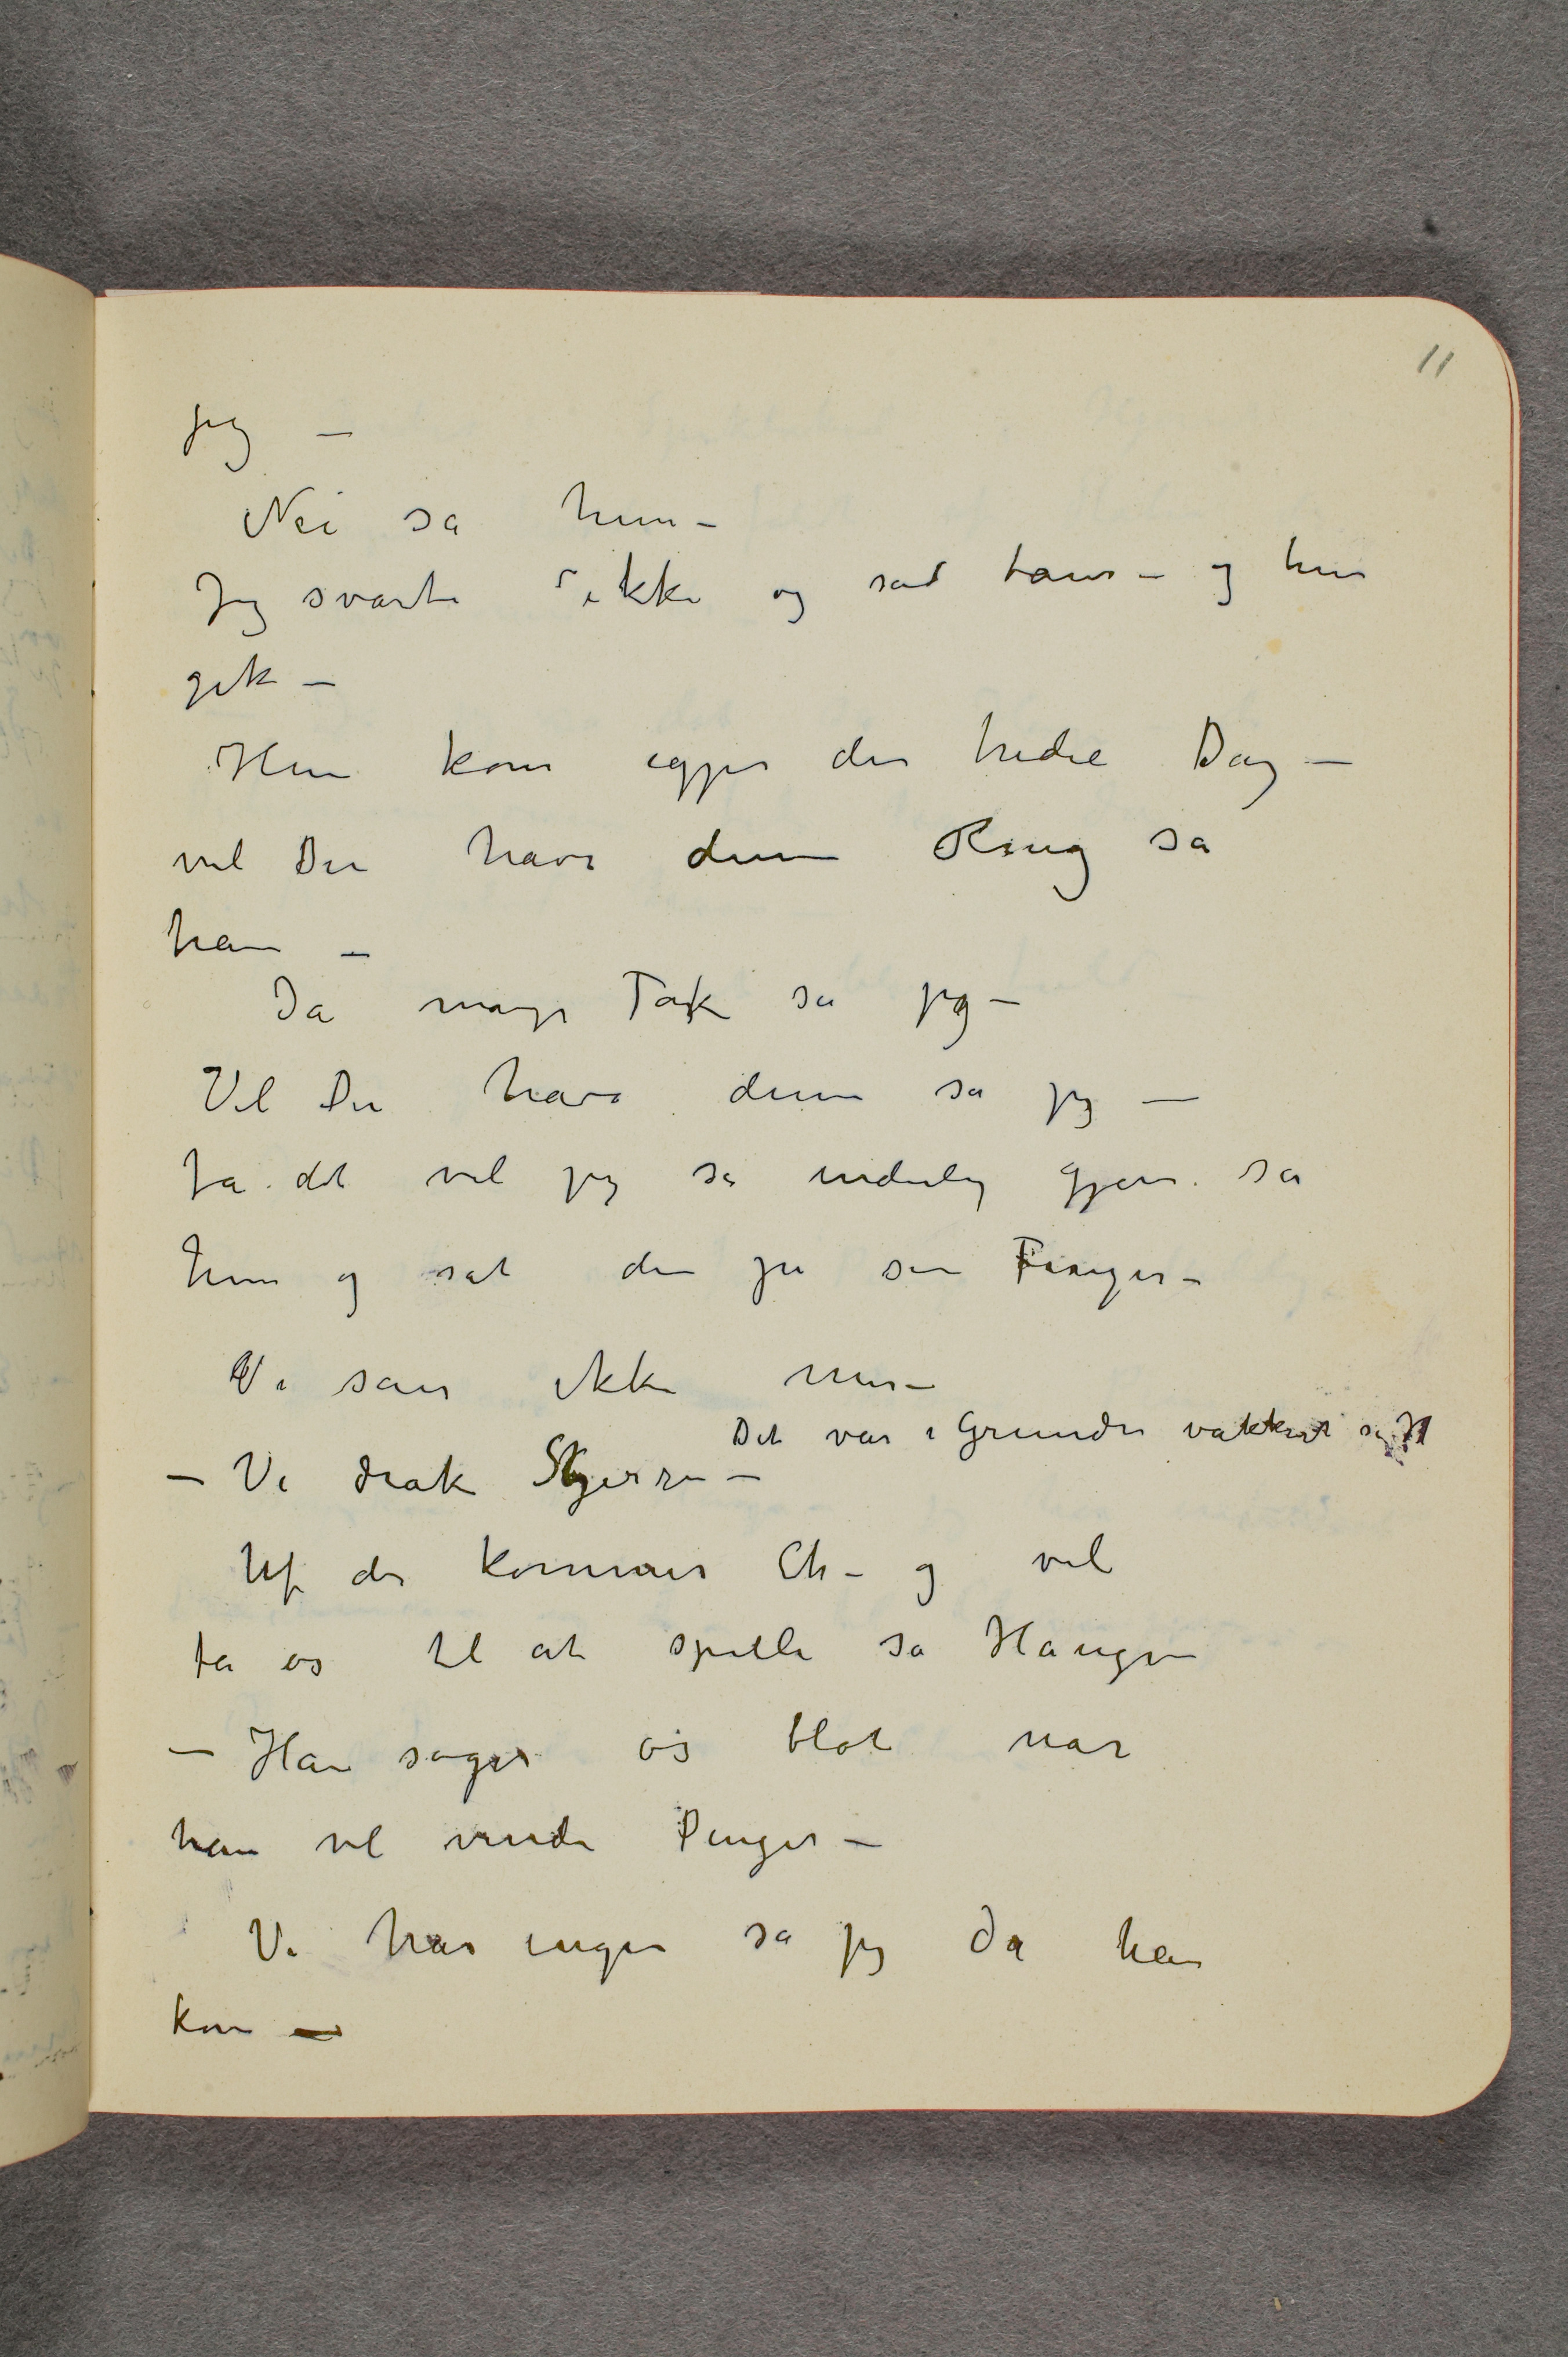 11
jeg –
Nei sa hun –
Jeg svarte ikke og sad taus – og hun
gik –
Hun kom igjen den tredie Dag –
vil De have denne Ring sa
han –
Ja mange Tak sa jeg –
Vil De have denne sa jeg –
Ja det vil jeg så inderlig gjerne sa
hun og sat den på sin Finger –
Vi saes ikke mer –
Det var i Grunden vakkert sa H
– Vi drak Skjerri –
Uf der kommer Ch – og vil
fa os til at spille sa Haugen
– Han søger os blot når
han vil vinde Penger –
Vi har ingen sa jeg da han
kom –